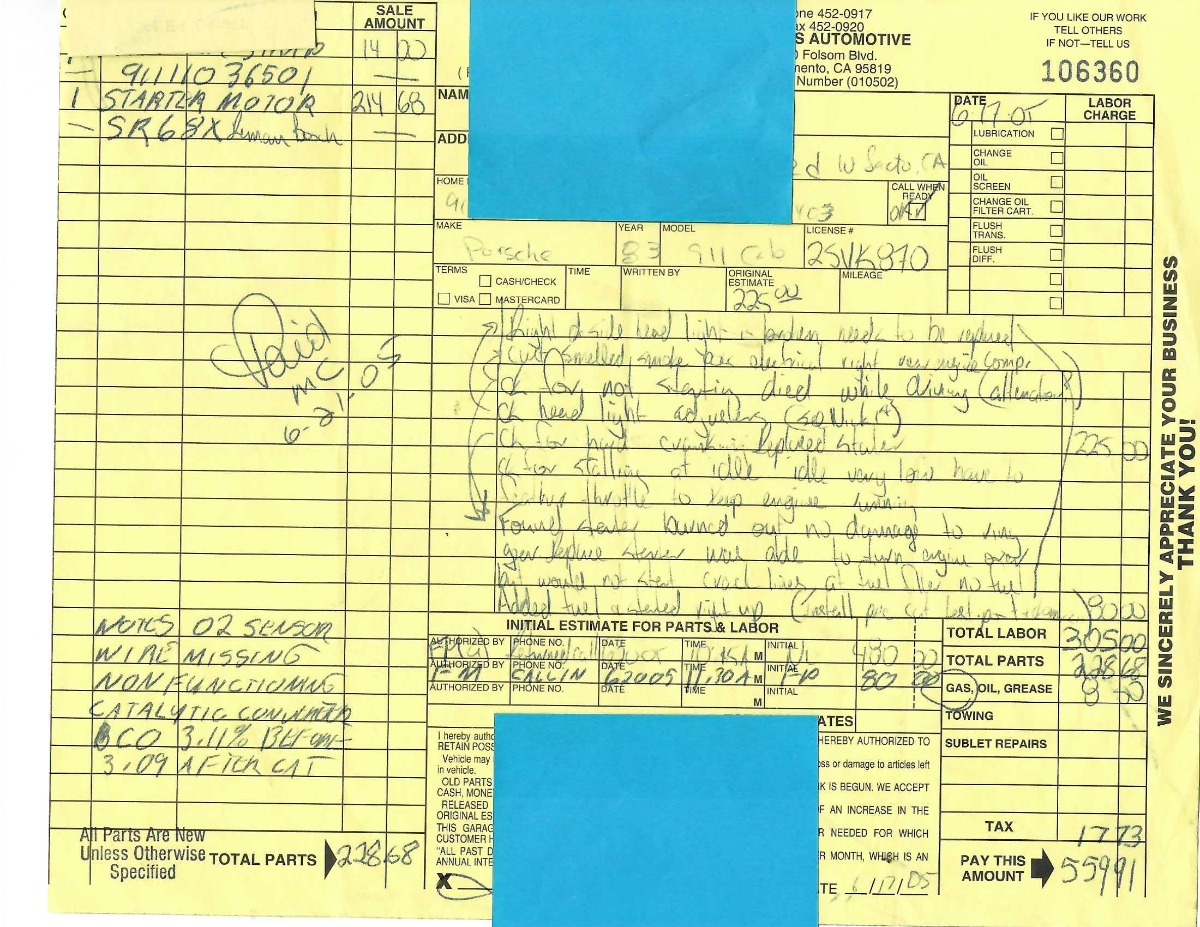 SALE AMOUNT
14 00
— 91111036501 —
1 STARTER MOTOR 214 68
— SR68X Bosch —
Paid
MC
6-21-05
NOTES O2 SENSOR
WIRE MISSING
NON FUNCTIONING
CATALYTIC CONVERTER
CO 3.11% BEFORE
3.09 AFTER CAT
All Parts Are New
Unless Otherwise
Specified
TOTAL PARTS 228 68
one 452-0917
ax 452-0920
S AUTOMOTIVE
Folsom Blvd.
mento, CA 95819
Number (010502)
IF YOU LIKE OUR WORK
TELL OTHERS
IF NOT—TELL US
106360
NAM
ADD
W Sacto, CA
HOME
CALL WHEN READY
MAKE YEAR MODEL LICENSE #
Porsche 83 911 Cab 2SVK870
TERMS CASH/CHECK TIME WRITTEN BY ORIGINAL ESTIMATE MILEAGE
VISA MASTERCARD 225 00
DATE LABOR CHARGE
6/17 05
LUBRICATION
CHANGE OIL
OIL SCREEN
CHANGE OIL FILTER CART.
FLUSH TRANS.
FLUSH DIFF.
Right side head light is broken needs to be replaced
smelled smoke electrical right rear engine Comp.
Ck for not starting died while driving
Ck head light adjusters
Ck for hard crank replaced starter 225 00
Ck for stalling at idle idle very low have to
throttle to keep engine running
Found starter burned out no damage to ring
gear Replace starter was able to turn engine over
but would not start lines at fuel no fuel
Added fuel & started right up 80 00
INITIAL ESTIMATE FOR PARTS & LABOR
AUTHORIZED BY PHONE NO. DATE TIME M INITIAL
480 00
AUTHORIZED BY PHONE NO. DATE TIME M INITIAL
CALL IN 62005 11:30A 80 00
AUTHORIZED BY PHONE NO. DATE TIME M INITIAL
TOTAL LABOR 305 00
TOTAL PARTS 228 68
GAS, OIL, GREASE 8 50
TOWING
SUBLET REPAIRS
TAX 17 73
PAY THIS AMOUNT 559 91
ATES
I hereby autho
RETAIN POSS
Vehicle may
in vehicle.
OLD PARTS
CASH, MONE
RELEASED
ORIGINAL ES
THIS GARAG
CUSTOMER H
"ALL PAST D
ANNUAL INTE
X
HEREBY AUTHORIZED TO
oss or damage to articles left
K IS BEGUN. WE ACCEPT
F AN INCREASE IN THE
R NEEDED FOR WHICH
R MONTH, WHICH IS AN
TE 6/17/05
WE SINCERELY APPRECIATE YOUR BUSINESS
THANK YOU!